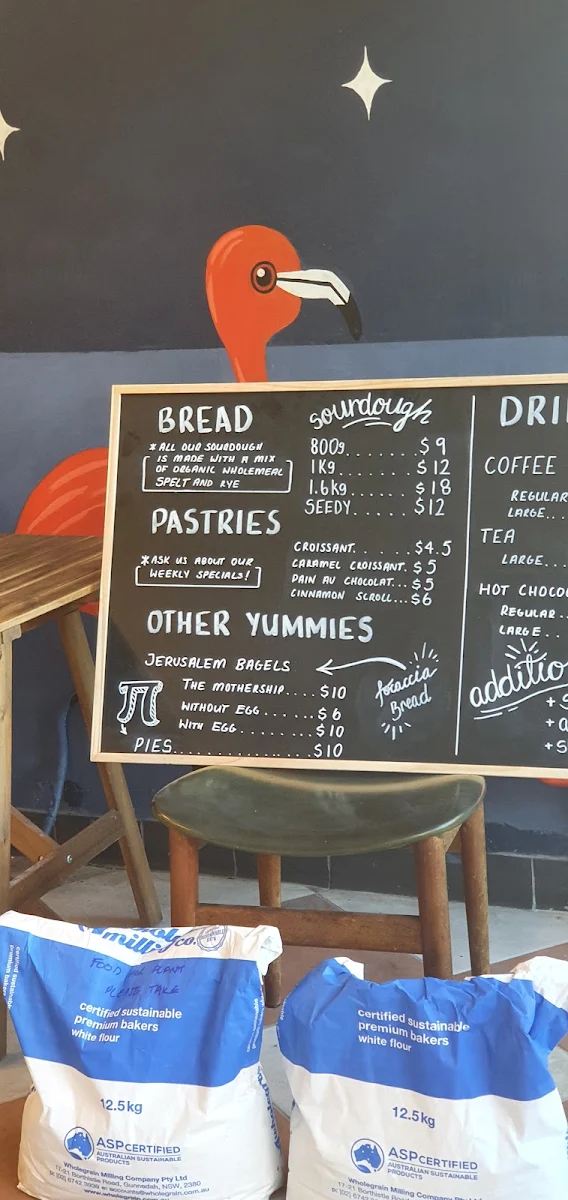 BREAD
*ALL OUR SOURDOUGH
IS MADE WITH A MIX
OF ORGANIC WHOLEMEAL
SPELT AND RYE
sourdough
800g......$9
1KG.......$12
1.6kg.....$18
SEEDY.....$12
PASTRIES
*ASK US ABOUT OUR
WEEKLY SPECIALS!
CROISSANT.......$4.5
CARAMEL CROISSANT.$5
PAIN AU CHOCOLAT...$5
CINNAMON SCROLL...$6
OTHER YUMMIES
JERUSALEM BAGELS
focaccia
Bread
THE MOTHERSHIP....$10
WITHOUT EGG.......$6
WITH EGG..........$10
PIES..............$10
DRI
COFFEE
REGULAR
LARGE...
TEA
LARGE...
HOT CHOCO
REGULAR..
LARGE..
additio
+S
+a
+S
milling co.
FOOD for PLANT
PLEASE TAKE
certified sustainable
premium bakers
white flour
12.5kg
ASPCERTIFIED
AUSTRALIAN SUSTAINABLE
PRODUCTS
Wholegrain Milling Company Pty Ltd
17-21 Borthistle Road, Gunnedah, NSW, 2380
www.wholegrain.com.au
certified sustainable
premium bakers
white flour
12.5kg
ASPCERTIFIED
AUSTRALIAN SUSTAINABLE
PRODUCTS
Wholegrain Milling Company Pty Ltd
17-21 Borthistle Road, Gunnedah, NSW